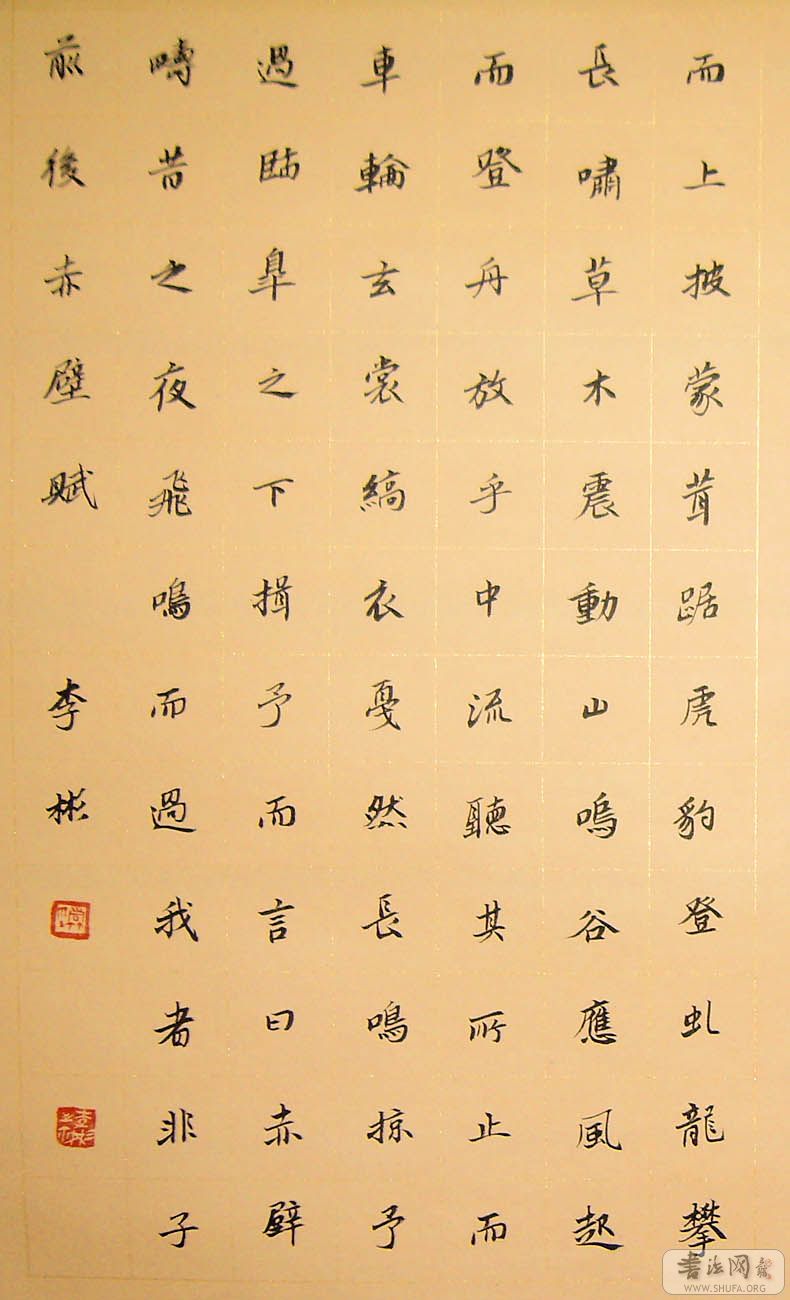 而上披蒙茸踞虎豹登虬龍攀
長嘯草木震動山鳴谷應風起
而登舟放乎中流聽其所止而
車輪玄裳縞衣戛然長鳴掠予
過臨臯之下揖予而言曰赤壁
疇昔之夜飛鳴而過我者非子
前後赤壁賦 李彬
書法网
WWW.SHUFA.ORG